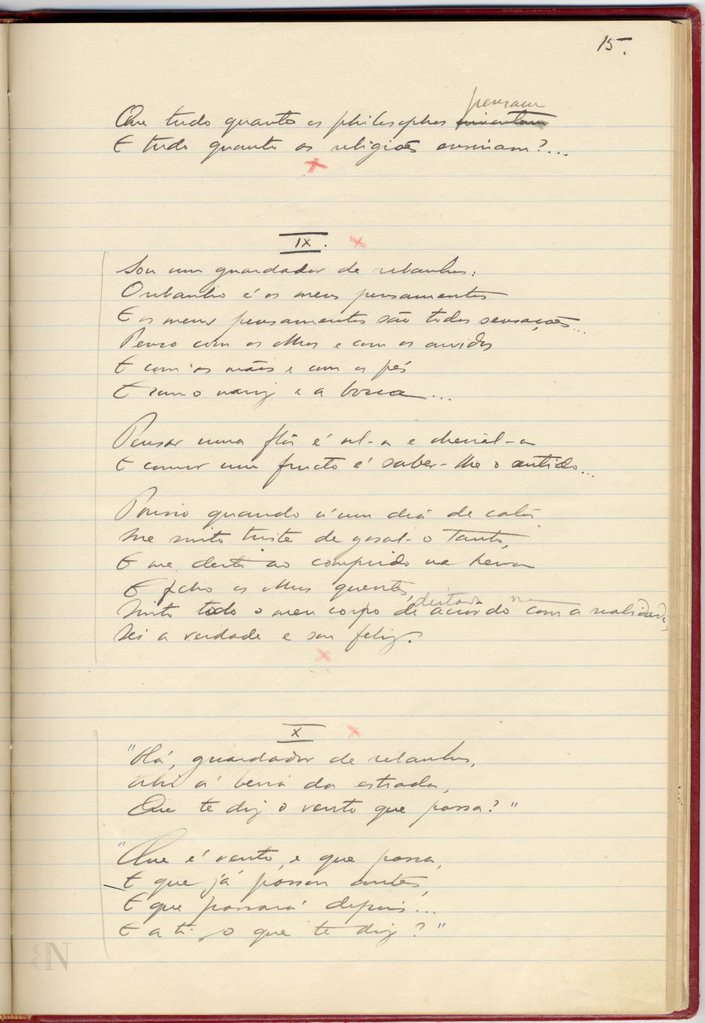 15.
pensam
Que tudo quanto os philosophos inventam
E tudo quanto as religiões ensinam?...
IX.
Sou um guardador de rebanhos.
O rebanho é os meus pensamentos
E os meus pensamentos são todos sensações...
Penso com os olhos e com os ouvidos
E com as mãos e com os pés
E com o nariz e a bocca...
Pensar uma flôr é vel-a e cheiral-a
E comer um fructo é saber-lhe o sentido...
Porisso quando n'um dia de calôr
Me sinto triste de gosal-o tanto,
E me deito ao comprido na herva
E fecho os olhos quentes,
deitado na
Sinto todo o meu corpo de accordo com a realidade,
Sei a verdade e sou feliz.
X
"Olá, guardador de rebanhos,
Ahi á beira da estrada,
Que te diz o vento que passa?"
"Que é vento, e que passa,
E que já passou antes,
E que passará depois...
E a ti o que te diz?"
BN